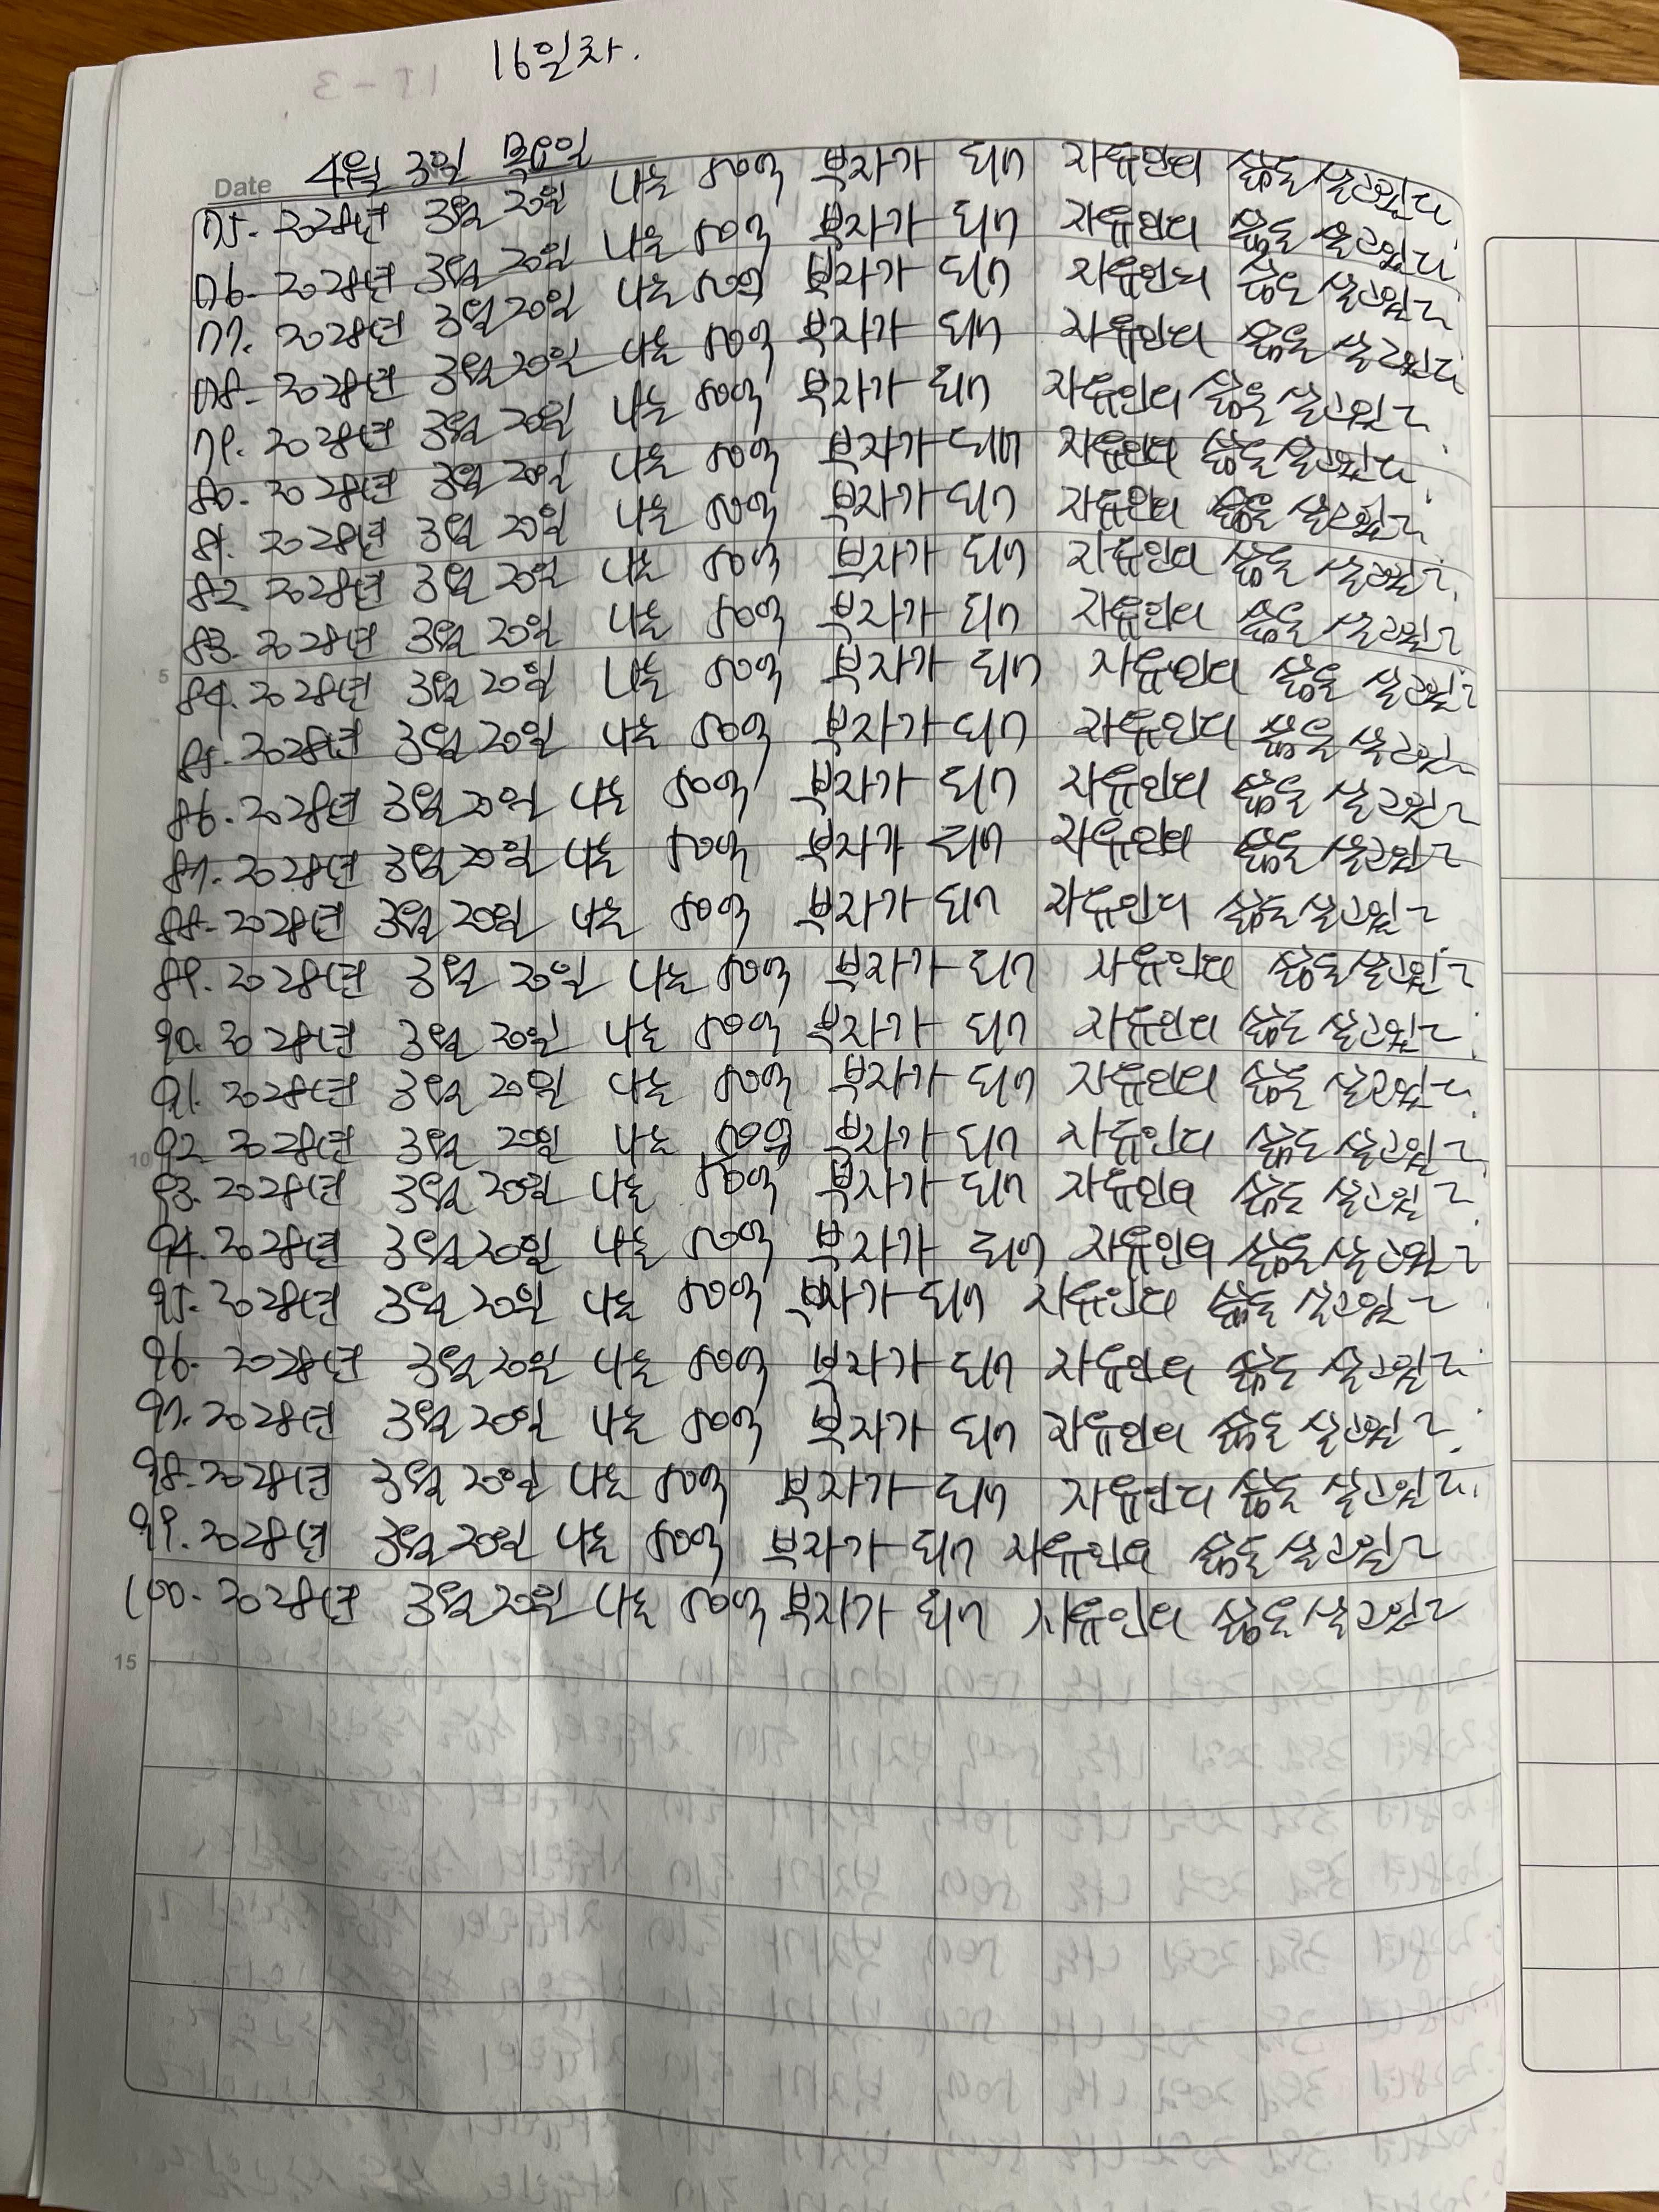 16일차.
Date 4월 3일 목요일
75. 2028년 3월 20일 나는 50억 부자가 되어 자유인의 삶을 살고있다.
76. 2028년 3월 20일 나는 50억 부자가 되어 자유인의 삶을 살고있다.
77. 2028년 3월 20일 나는 50억 부자가 되어 자유인의 삶을 살고있다.
78. 2028년 3월 20일 나는 50억 부자가 되어 자유인의 삶을 살고있다.
79. 2028년 3월 20일 나는 50억 부자가 되어 자유인의 삶을 살고있다.
80. 2028년 3월 20일 나는 50억 부자가 되어 자유인의 삶을 살고있다.
81. 2028년 3월 20일 나는 50억 부자가 되어 자유인의 삶을 살고있다.
82. 2028년 3월 20일 나는 50억 부자가 되어 자유인의 삶을 살고있다.
83. 2028년 3월 20일 나는 50억 부자가 되어 자유인의 삶을 살고있다
5
84. 2028년 3월 20일 나는 50억 부자가 되어 자유인의 삶을 살고있다
85. 2028년 3월 20일 나는 50억 부자가 되어 자유인의 삶을 살고있다
86. 2028년 3월 20일 나는 50억 부자가 되어 자유인의 삶을 살고있다
87. 2028년 3월 20일 나는 50억 부자가 되어 자유인의 삶을 살고있다
88. 2028년 3월 20일 나는 50억 부자가 되어 자유인의 삶을 살고있다
89. 2028년 3월 20일 나는 50억 부자가 되어 자유인의 삶을 살고있다.
90. 2028년 3월 20일 나는 50억 부자가 되어 자유인의 삶을 살고있다.
91. 2028년 3월 20일 나는 50억 부자가 되어 자유인의 삶을 살고있다.
92. 2028년 3월 20일 나는 50억 부자가 되어 자유인의 삶을 살고있다.
10
93. 2028년 3월 20일 나는 50억 부자가 되어 자유인의 삶을 살고있다.
94. 2028년 3월 20일 나는 50억 부자가 되어 자유인의 삶을 살고있다
95. 2028년 3월 20일 나는 50억 부자가 되어 자유인의 삶을 살고있다.
96. 2028년 3월 20일 나는 50억 부자가 되어 자유인의 삶을 살고있다.
97. 2028년 3월 20일 나는 50억 부자가 되어 자유인의 삶을 살고있다.
98. 2028년 3월 20일 나는 50억 부자가 되어 자유인의 삶을 살고있다.
99. 2028년 3월 20일 나는 50억 부자가 되어 자유인의 삶을 살고있다
100. 2028년 3월 20일 나는 50억 부자가 되어 자유인의 삶을 살고있다
15